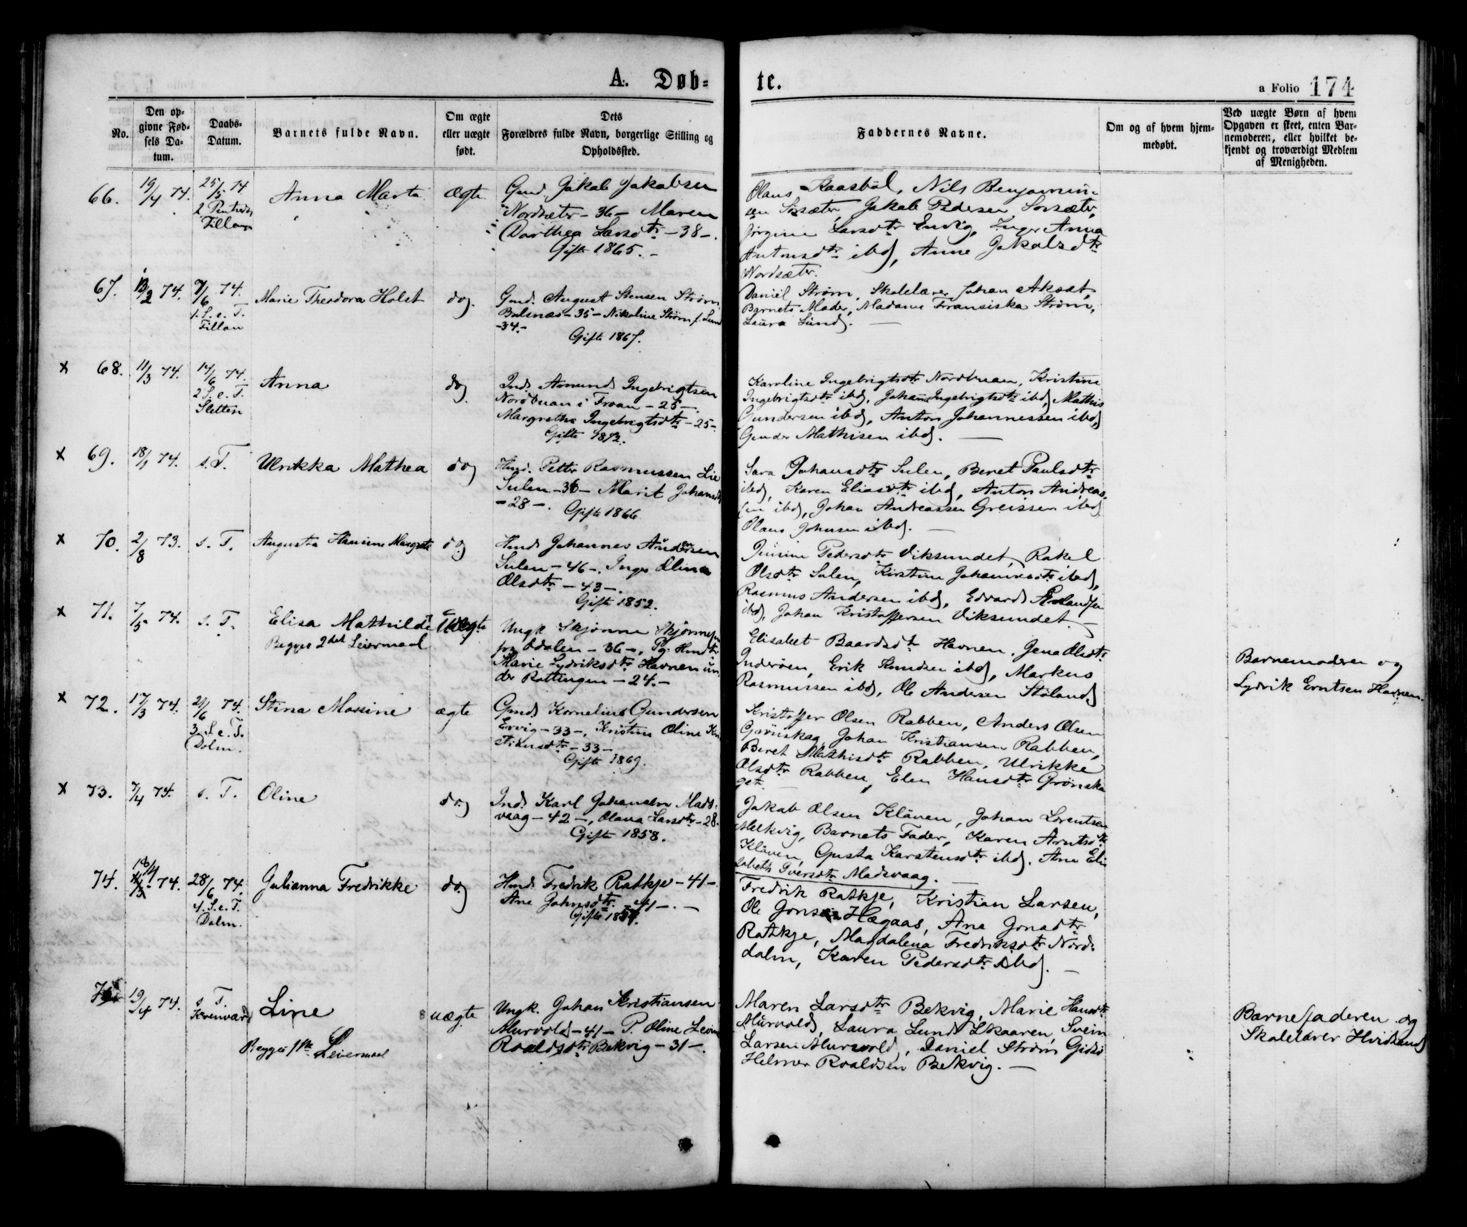 A. Døb=
te.
a Folio 174
No.
Den op-
givne Fød-
sels Da-
tum.
Daabs-
Datum.
Barnets fulde Navn.
Om ægte
eller uægte
født.
Dets
Forældres fulde Navn, borgerlige Stilling og
Opholdssted.
Faddernes Navne.
Om og af hvem hjem-
medøbt.
Ved uægte Børn af hvem
Opgaven er skeet, enten Bar-
nemoderen, eller hvilket be-
kjendt og troværdigt Medlem
af Menigheden.
66.
19/4 74.
25/5 74
2 Pintsed.
Fillan
Anna Marta
ægte
Gmd. Jakob Jakobsen
Nordsæter - 36 - Maren
Dorthea Larsdtr - 38 -.
Gift 1865. -
Olaus Kaasbøl, Nils Benjamin
sen Sørsæter, Jakob Pedersen Sørsæter,
Jørgine Larsdtr Envig, Inger Anna
Antonsdtr ibd, Anne Jakobsdtr
Nordsæter.
67.
13/2 74.
7/6 74.
1. S. e. T.
Fillan
Marie Theodora Holst
do.
Gmd. August Stensen Strøm
- 35 - Nikoline Strøm f. Lund
- 34. -
Gift 1867.
Daniel Strøm, Skolelærer Johan
Barnets Moder, Madame Fransiska Strøm,
Laura Lund. -
x 68.
11/3 74.
14/6 74.
2 S. e. T.
Sletten
Anna
do.
Ind. Amund Ingebrigtsen
Nordbuan i Froan - 25 -
Margrethe Ingebrigtsdtr - 25 -
Gift 1872.
Karoline Ingebrigtsdtr Nordbuan, Kristine
Ingebrigtsdtr ibd, Johan Ingebrigtsdtr ibd, Mathis
Gundersen ibd, Anton Johannessen ibd,
Gunder Mathisen ibd. -
x 69.
18/1 74.
s. T.
Ulrikka Mathea
do
Hmd. Petter Rasmussen Lie
Sulen - 36 - Marit Johansdtr
- 28 -.
Gift 1866
Sara Johansdtr Sulen, Beret Paulsdtr
ibd, Karen Eliasdtr ibd, Anton Andreas-
sen ibd, Johan Andreassen Greissen ibd
Olaus Johnsen ibd. -
x 70.
2/8 73.
s. T.
Augusta Hansine Margrete
do.
Hmd. Johannes Andersen
Sulen - 46 -. Inger Elina
Olsdtr - 43 -.
Gift 1852.
Pedersdtr Viksundet, Rakel
Olsdtr Sulen, Kirstine Johannesdtr ibd,
Rasmus Andersen ibd, Edvard
ibd, Johan Kristoffersen Viksundet -
x 71.
7/3 74.
s. T.
Elisa Mathilde
Begges 2det Leiermaal
Uægte
Ungk. Skjønne
fra Odalen - 36 -, Pg.
Marie Lydriksdtr Havnen un
der Rottingen - 24. -
Elisabet Baardsdtr Havnen, Jena Olsdtr
Inderøen, Erik Knudsen ibd, Markus
Rasmussen ibd, Ole Andersen Støland
Barnemoderen og
Lydrik Erntsen Havnen.
x 72.
17/3 74.
21/6 74.
3 S. e. T.
Dolm.
Stina Maxine
ægte
Gmd. Kornelius Gundersen
Ervig - 33 -, Kristine Oline
- 33 -
Gift 1869.
Kristoffer Olsen Rabben, Anders Olsen
Grønskag, Johan Kristiansen Rabben,
Beret Mathisdtr Rabben, Ulrikke
Olsdtr Rabben, Elen Hansdtr Grønska
get. -
x 73.
7/4 74.
s. T.
Oline
do
Ind. Karl Johansen Mads-
vaag - 42 -, Olava Larsdtr - 28.
Gift 1858.
Jakob Olsen Kløven, Johan Lorentsen
Melkvig, Barnets Fader, Karen Arntsdtr
Kløven, Gusta Karstensdtr ibd. Ane Eli-
sabeth Iversdtr Madsvaag. -
74.
74.
28/6 74.
4. S. e. T.
Dolm.
Julianna Fredrikke
do
Hmd. Fredrik Ratkje - 41 -
Ane Johnsdtr - 41 -. -
Gift
Fredrik Ratkje, Kristian Larsen,
Ole Jonsen Hægaas, Ane Jonsdtr
Ratkje, Magdalena Fredriksdtr Nord-
dolm, Karen Pedersdtr ibd. -
75
19/4 74.
s. T.
Line
Begges 1ste Leiermaal
uægte
Ungk. Johan Kristiansen
Murvold - 41 - P. Oline
Roaldsdtr Bekvig - 31 -.
Maren Larsdtr Bekvig, Marie Hansdtr
Murvold, Laura Lund Skaaren, Svein
Larsen Murvold, Daniel Strøm
Helmer Roaldsen Bekvig. -
Barnefaderen og
Skolelærer Hvidsand